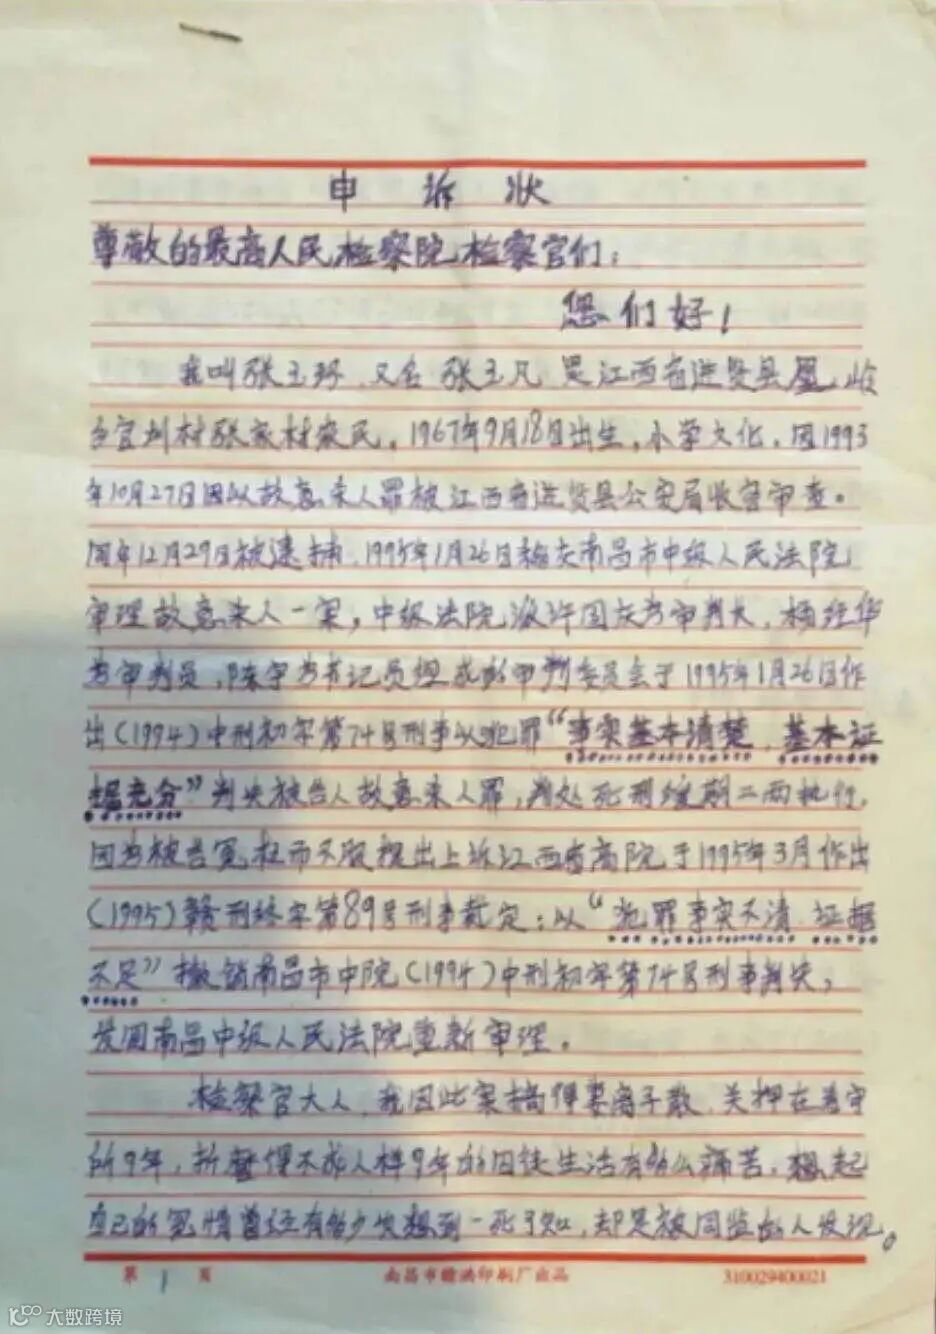 申诉状
尊敬的最高人民检察院检察官们：
您们好！
我叫张玉环，又名张玉凡是江西省进贤县凰岭
乡宫圳村张家村农民。1967年9月18日出生，小学文化，因1993
年10月27日因以故意杀人罪被江西省进贤县公安局收容审查。
同年12月29日被逮捕，1995年1月26日被南昌市中级人民法院
审理故意杀人一案，中级法院派许国友为审判长，杨经华
为审判员，陈宇为书记员组成的审判委员会于1995年1月26日作
出(1994)中刑初字第74号刑事以犯罪“事实基本清楚，基本证
据充分”判决被告人故意杀人罪，判处死刑缓期二两执行，
因为被告冤枉而不服提出上诉江西省高院于1995年3月作出
(1995)赣刑终字第89号刑事裁定：以“犯罪事实不清 证据
不足”撤销南昌市中院(1994)中刑初字第74号刑事判决，
发回南昌中级人民法院重新审理。
检察官大人，我因此案搞得妻离子散，关押在看守
所9年，折磨得不成人样9年的囚徒生活有多么痛苦，想起
自己的冤情曾经有多少次想到一死了知，却是被同监的人发现。
第 1 页
南昌市赣洪印刷厂出品
310029400021
大数跨境